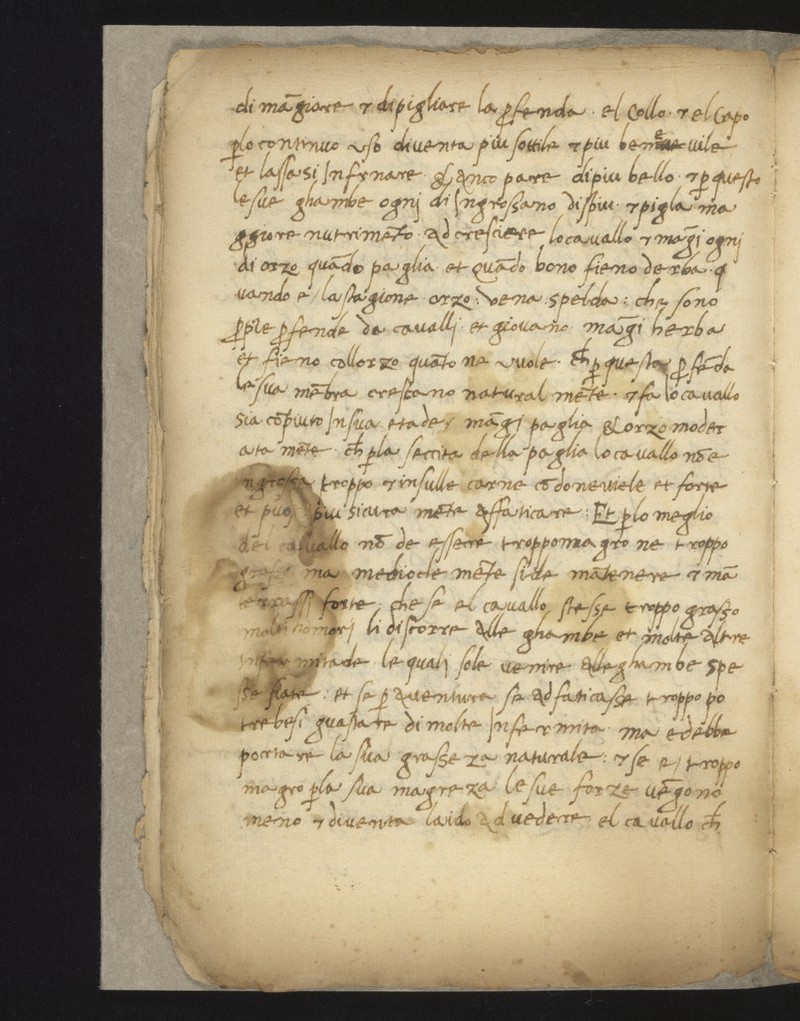 di mãgiare & dipigliare la ꝓfenda · el Collo · & el Capo
ꝑlo continuo uso diventa piu sottile & piu bene vile
et lassasi Infrnare · & anco parre dipiu bello · & ꝑ questo
le sue ghambe ogni di Ingrossano dispiu · & pigla ma
ggiore nutrimẽto · ad cresciere lo cavallo & mãgi ogni
di orzo quãdo paglia · et quãdo bono fieno derba · q
uando e / la stagione orzo : vena · spelda : che sono
ꝓprie ꝓfende da cavalli · et giovano · mãgi herba
et fieno collorzo quãto ne vuole · cħ ꝑ questa ꝓfẽda
le sua mẽbra crescano natural mẽte · & fa lo cavallo
sia cõpiuto In sua etade / mãgi paglia & orzo moder
ata mẽte · cħ ꝑla seccita della paglia lo cavallo nõ e
ngrossa troppo & insulle carne cõdoneviele et forte
et puoj piu sicura mẽte affaticare : Et ꝑlo meglio
del cavallo nõ de essere troppo magro ne troppo
grasso ma mediocle mẽte si de mãtenere & mã
terrassi forte, che se el cavallo stesse troppo grasso
molti homori li discorre alle ghambe et molte altre
infermitade le quali sole venire alle ghambe spe
sse fiate : et se ꝑ aventura se adfaticasse troppo po
trebesi guastare di molte Infermita ma edebbe
portare la sua grasseza naturale : & se e / troppo
magro ꝑla sua magreza · le sue forze vẽgono
meno & diventa laido ad vedere · el cavallo cħ